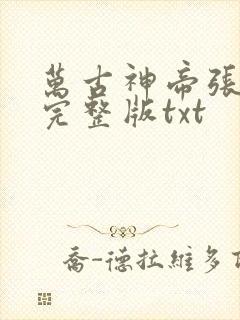 萬古神帝張
完整版txt
喬-德拉維多